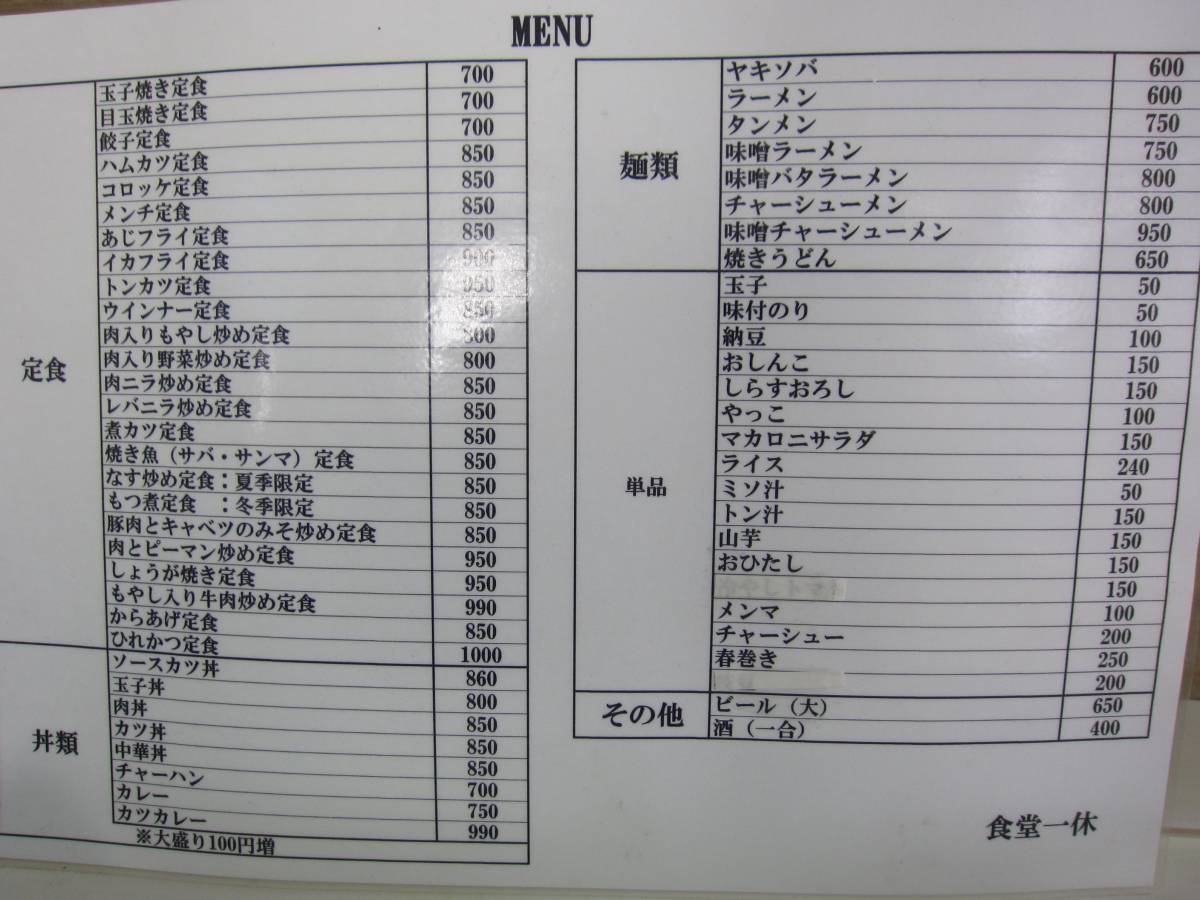 MENU
定食
玉子焼き定食 700
目玉焼き定食 700
餃子定食 700
ハムカツ定食 850
コロッケ定食 850
メンチ定食 850
あじフライ定食 850
イカフライ定食 900
トンカツ定食 950
ウインナー定食 850
肉入りもやし炒め定食 800
肉入り野菜炒め定食 800
肉ニラ炒め定食 850
レバニラ炒め定食 850
煮カツ定食 850
焼き魚（サバ・サンマ）定食 850
なす炒め定食：夏季限定 850
もつ煮定食　：冬季限定 850
豚肉とキャベツのみそ炒め定食 850
肉とピーマン炒め定食 950
しょうが焼き定食 950
もやし入り牛肉炒め定食 990
からあげ定食 850
ひれかつ定食 1000
丼類
ソースカツ丼 860
玉子丼 800
肉丼 850
カツ丼 850
中華丼 850
チャーハン 700
カレー 750
カツカレー 990
※大盛り100円増
麺類
ヤキソバ 600
ラーメン 600
タンメン 750
味噌ラーメン 750
味噌バタラーメン 800
チャーシューメン 800
味噌チャーシューメン 950
焼きうどん 650
単品
玉子 50
味付のり 50
納豆 100
おしんこ 150
しらすおろし 150
やっこ 100
マカロニサラダ 150
ライス 240
ミソ汁 50
トン汁 150
山芋 150
おひたし 150
150
メンマ 100
チャーシュー 200
春巻き 250
200
その他
ビール（大） 650
酒（一合） 400
食堂一休